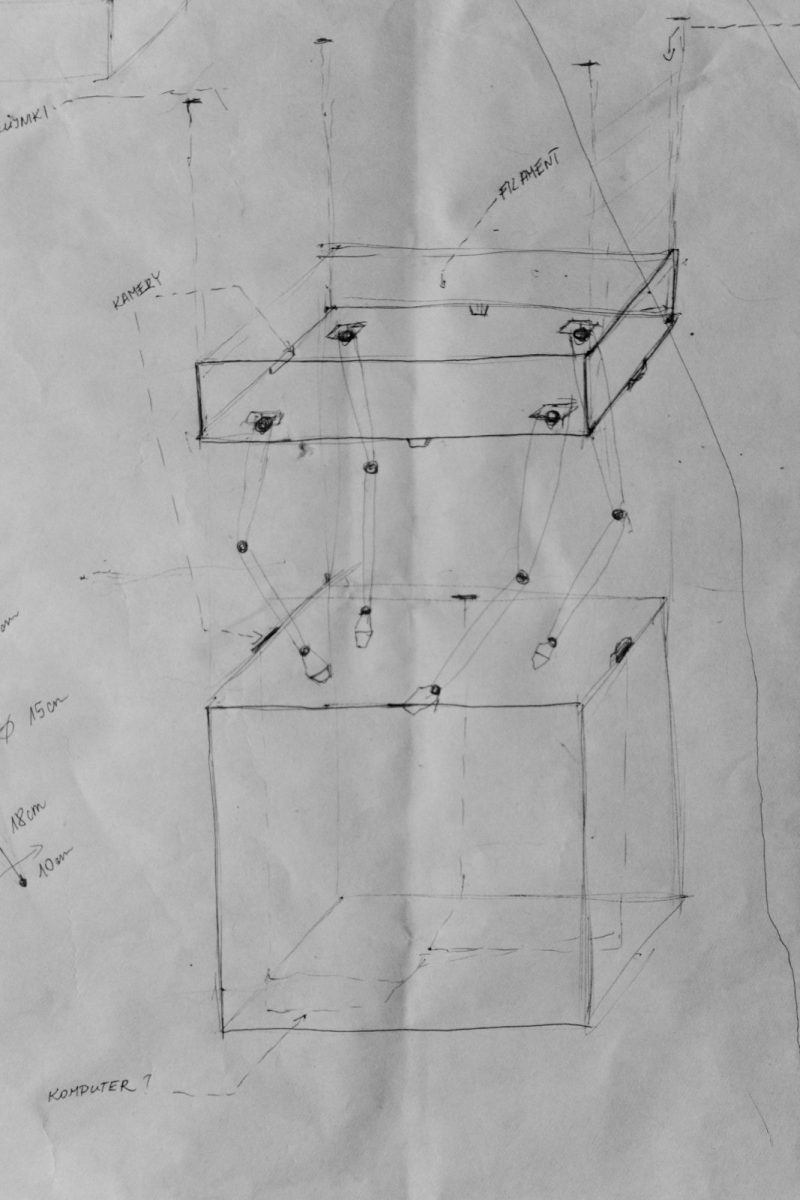 FILAMENT
KAMERY
15cm
18cm
10cm
KOMPUTER?